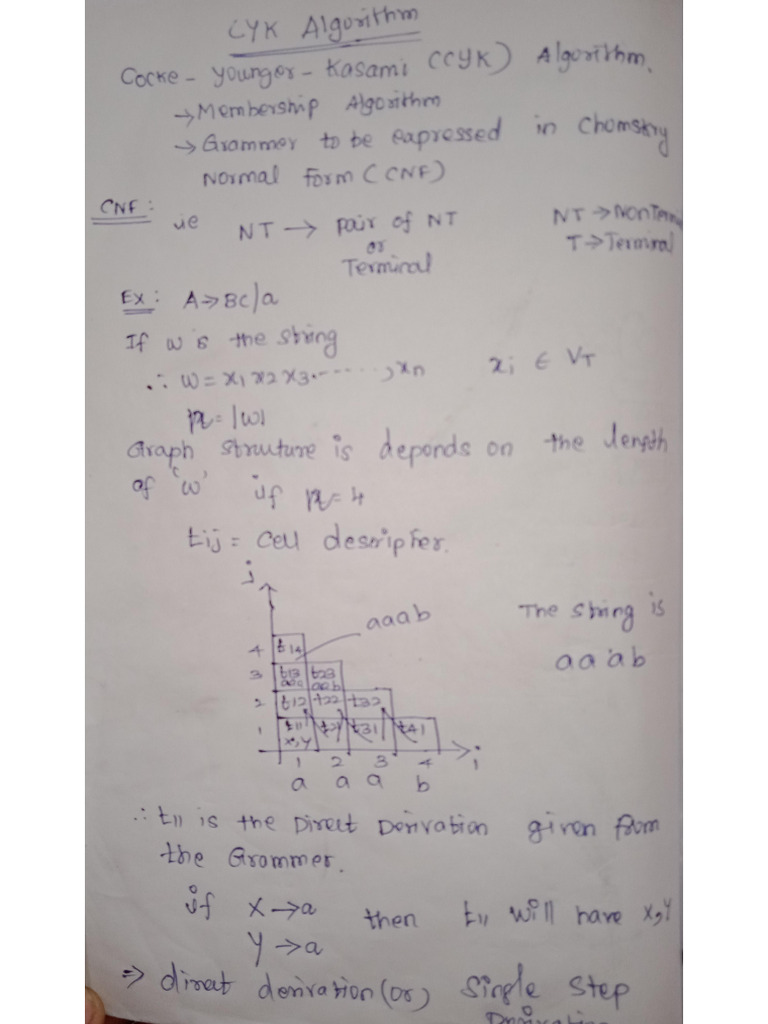 CYK Algorithm
Cocke - younger - Kasami (CYK) Algorithm.
→ Membership Algorithm
→ Grammer to be expressed in Chomsky
Normal form (CNF)
CNF: ie NT → pair of NT NT → NonTerm
or T → Terminal
Terminal
Ex: A → BC/a
If w is the string
∴ w = x1 x2 x3 ......., xn xi ∈ VT
n = |w|
Graph Structure is depends on the length
of 'w' if n = 4
tij = cell descripher.
j
aaab The string is
4 t14 aaab
3 t13 t23
aaa aab
2 t12 t22 t32
1 t11 t21 t31 t41
x,y i
1 2 3 4
a a a b
∴ t11 is the Direct Derivation given from
the Grammer.
if X → a then t11 will have x,y
Y → a
⇒ direct derivation (or) Single Step
Derivation